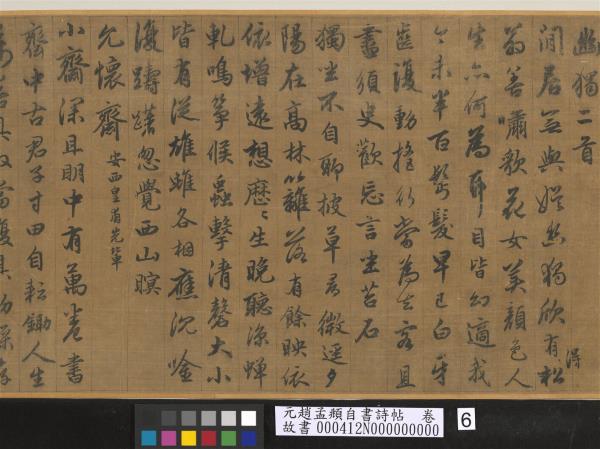 幽獨二首
閒居無與娛幽獨欣有得松
翁善嘯歌花女美顏色人
生亦何為耳目皆幻適我
今未半百鬢髮早已白牙
齒復動搖行當為去客且
盡須臾歡忘言坐苔石
獨坐不自聊披草尋微逕夕
陽在高林籬落有餘映依
依增遠想歷歷生晚聽涼蟬
軋鳴箏候蟲擊清磬大小
皆有從雄雌各相應沉唫
復躊躇忽覺西山暝
允懷齋 安西皇甫先輩
小齋深且明中有萬卷書
齋中古君子寸田自耘鋤人生
元趙孟頫自書詩帖 卷
故書 000412N000000000
6